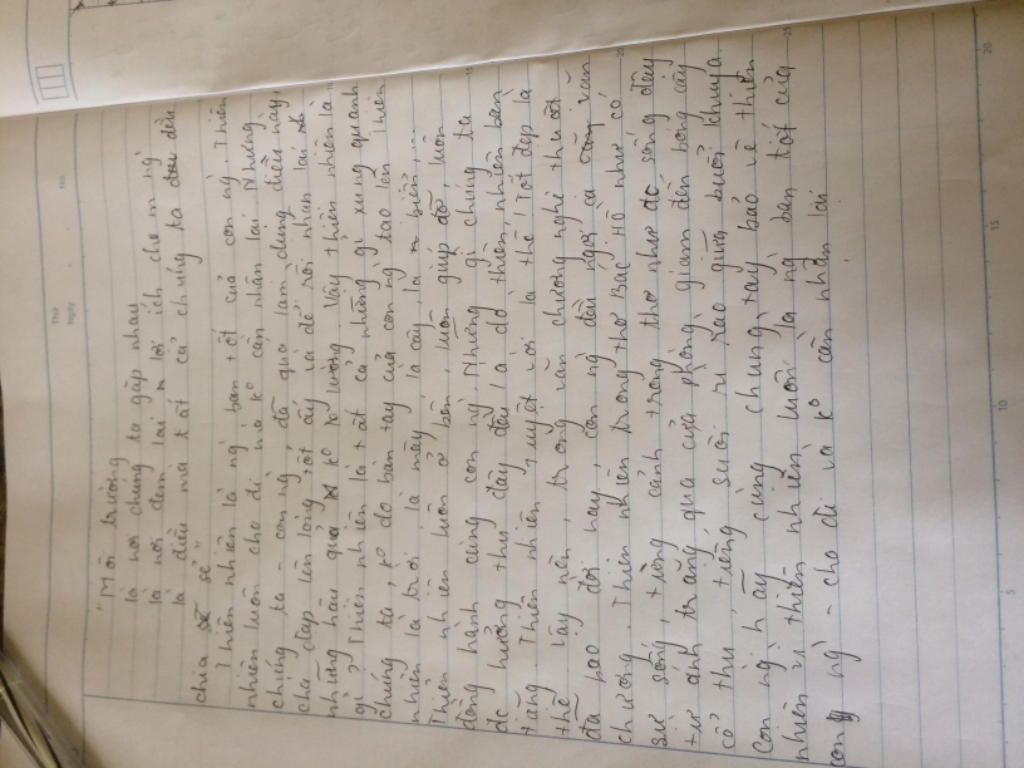 Thứ
Ngày
No.
"Môi trường
là nơi chúng ta gặp nhau
là nơi đem lại lợi ích cho mng
là điều mà tất cả chúng ta đều
chia sẻ"
Thiên nhiên là ng bạn tốt của con ng. Thiên
nhiên luôn cho đi mà ko cần nhận lại. Nhưng
chúng ta - con ng, đã quá lạm dụng điều này,
chà đạp lên lòng tốt ấy và để rồi nhận lại
những hậu quả ko lường. Vậy thiên nhiên là
gì? Thiên nhiên là tất cả những gì xung quanh
chúng ta, ko do bàn tay của con ng tạo lên. Thiên
nhiên là trời, là mây, là cây, là biển,...
Thiên nhiên luôn ở bên, luôn giúp đỡ, luôn
đồng hành cùng con ng. Những gì chúng ta
đc hưởng thụ đều là do thiên nhiên ban
tặng. Thiên nhiên tuyệt vời là thế! Tốt đẹp là
thế! Vậy nên, trong văn chương nghệ thuật
đã bao đời nay, con ng đều ngợi ca
chương. Thiên nhiên trong thơ Bác Hồ như có
sự sống, từng cảnh trong thơ như đc sống dậy
từ ánh trăng qua cửa phòng giam đến bóng cây
cổ thụ, tiếng suối rì rào giữa buổi khuya.
Con ng hãy cùng chung tay bảo vệ thiên
nhiên vì thiên nhiên luôn là ng bạn tốt của
con ng - cho đi và ko cần nhận lại
5
10
15
20